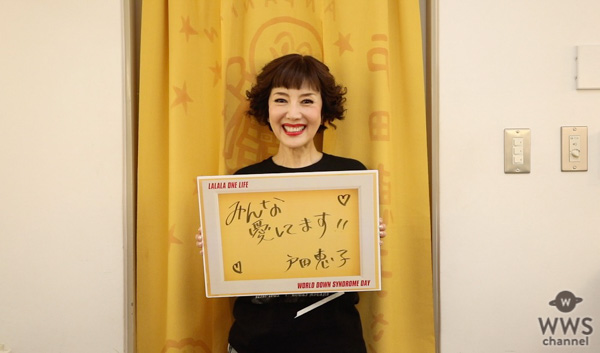 LALALA ONE LIFE
みんな
愛してます!!
戸田恵子
WORLD DOWN SYNDROME DAY
WWS
channel
WWS
channel